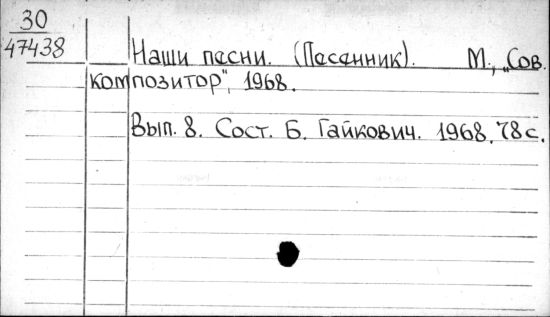 30
47438
Наши песни. (Песенник). М., „Сов.
композитор", 1968.
Вып. 8. Сост. Б. Гайкович. 1968. 78 с.